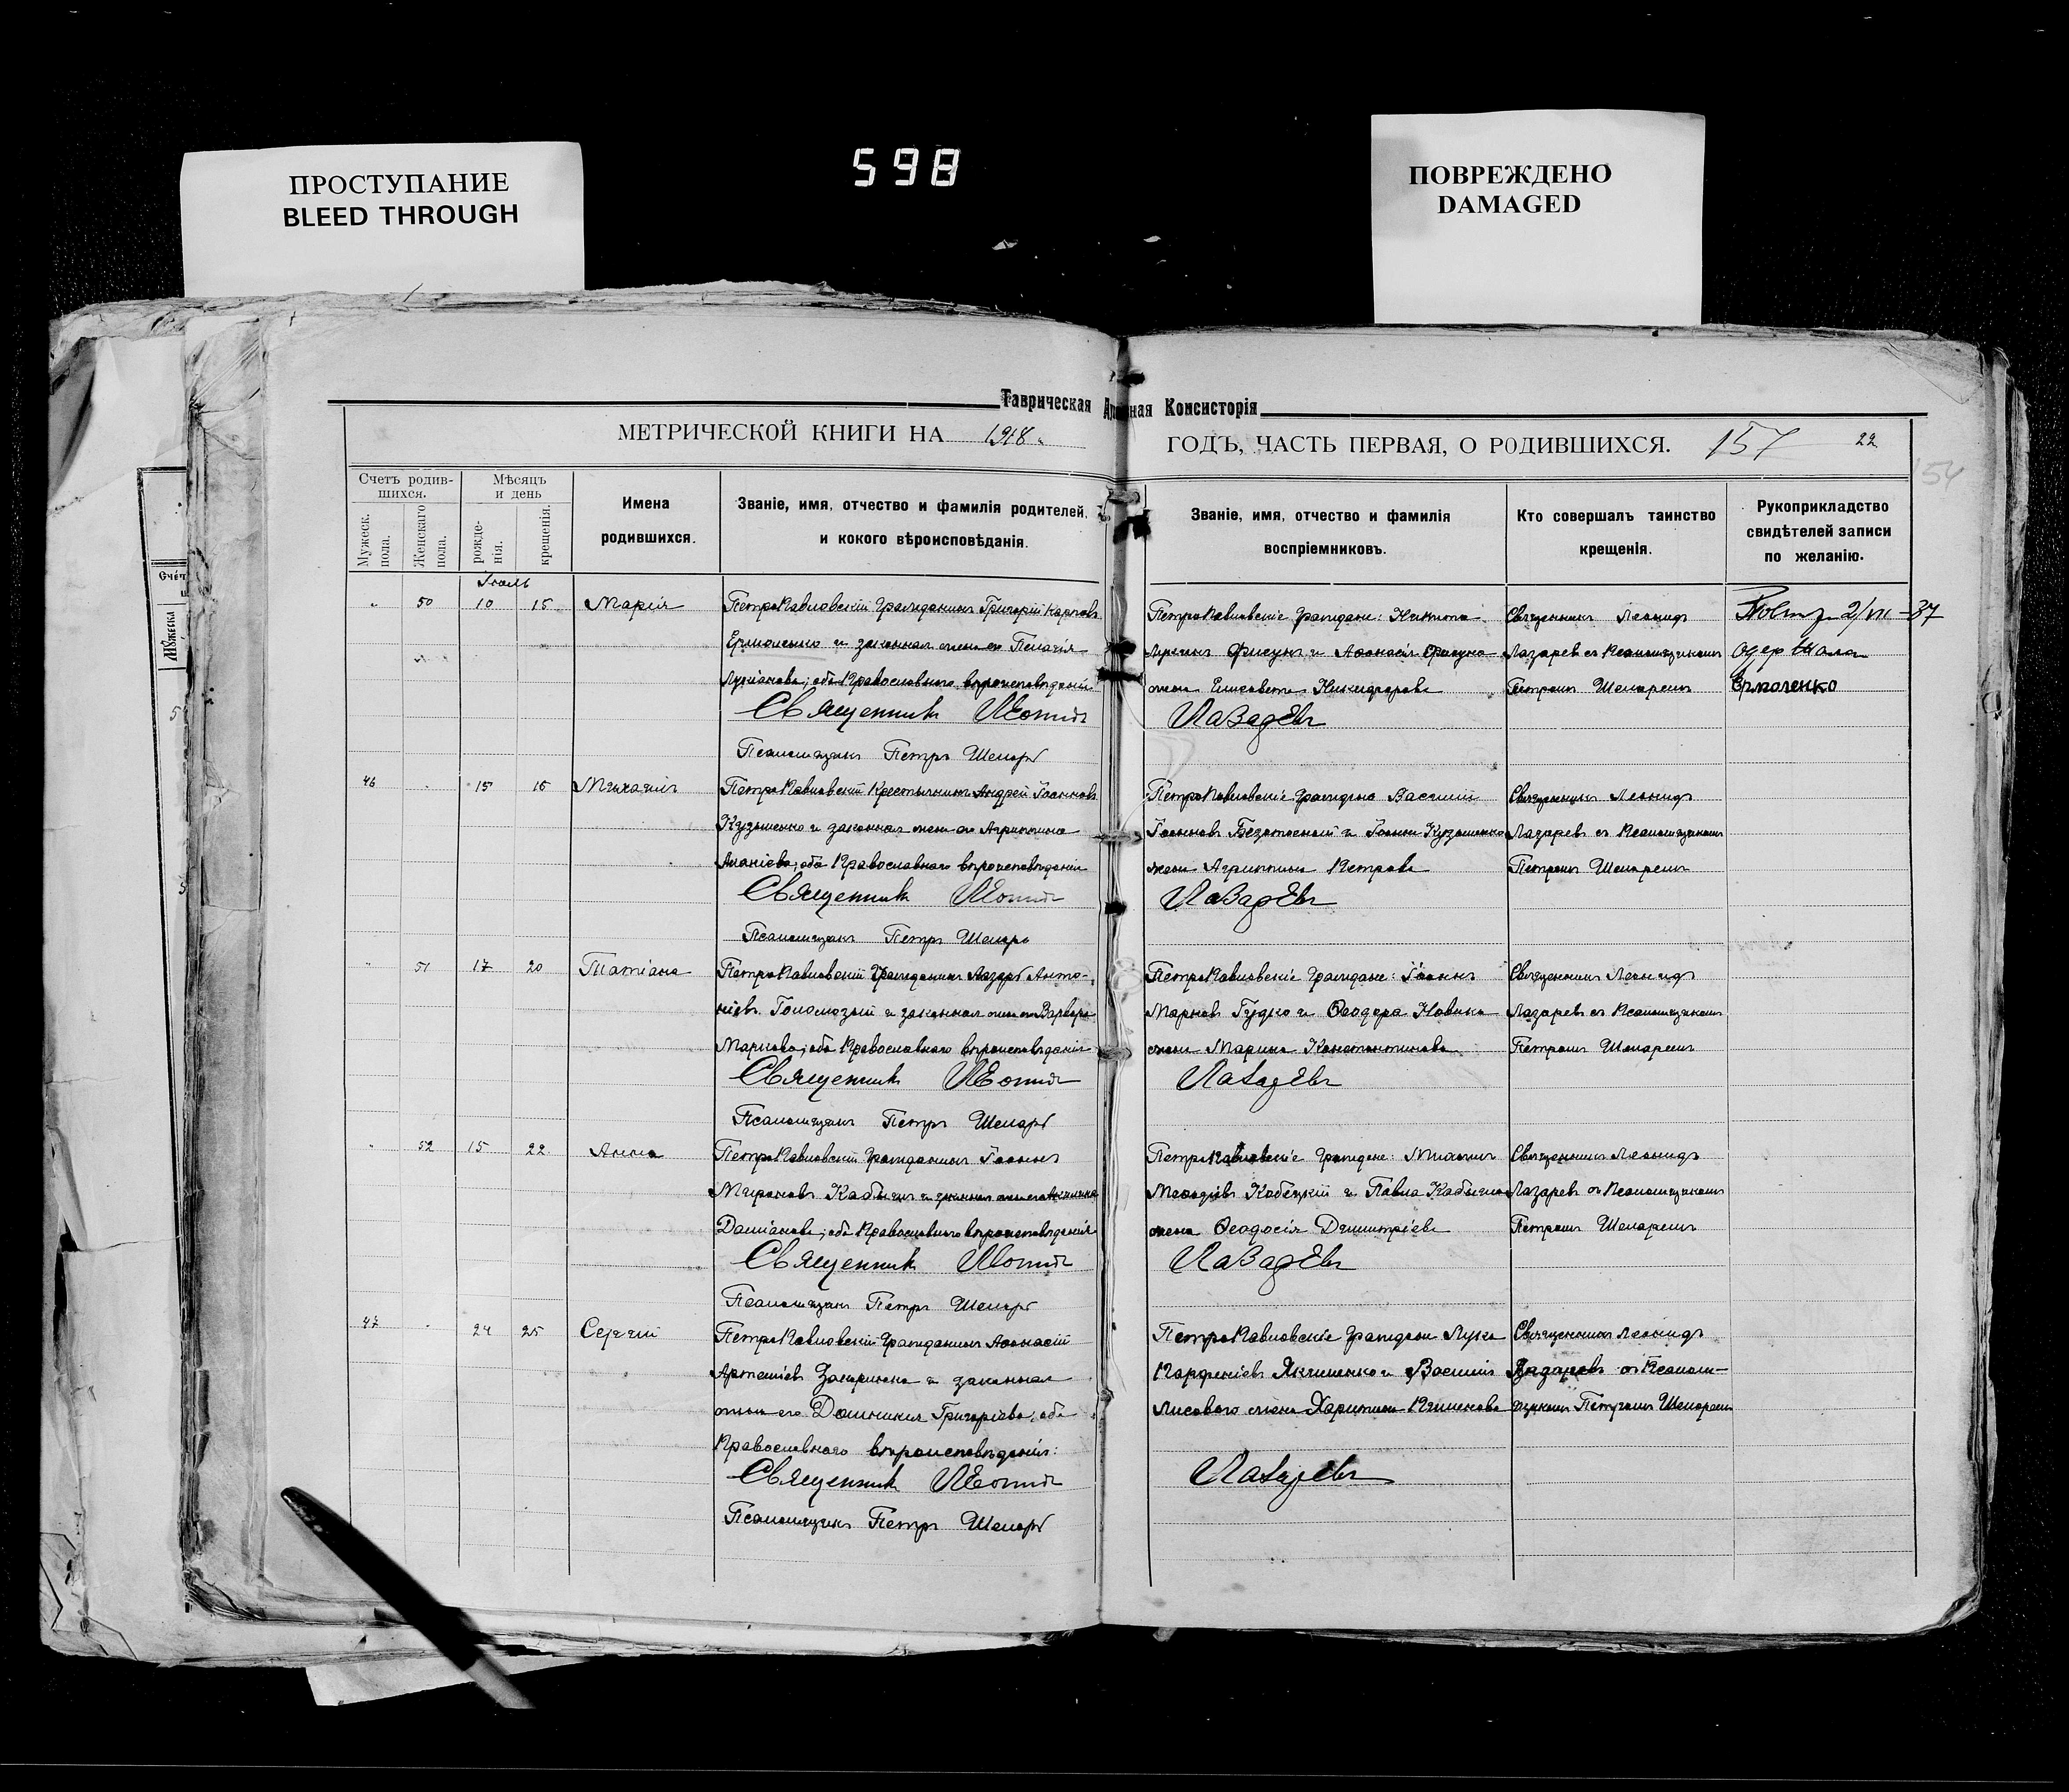 ПРОСТУПАНИЕ
BLEED THROUGH
598
ПОВРЕЖДЕНО
DAMAGED
Таврическая Консисторія
МЕТРИЧЕСКОЙ КНИГИ НА 1918 ГОДЪ, ЧАСТЬ ПЕРВАЯ, О РОДИВШИХСЯ. 157 22
154
Счетъ родив-
шихся.
Мужеск. пола.
Женскаго пола.
Мѣсяцъ
и день
рожде-
нія.
крещенія.
Имена
родившихся.
Званіе, имя, отчество и фамилія родителей,
и кокого вѣроисповѣданія.
Званіе, имя, отчество и фамилія
воспріемниковъ.
Кто совершалъ таинство
крещенія.
Рукоприкладство
свидѣтелей записи
по желанію.
Іюль
50 10 15 Марія
ПетроПавловскій Гражданинъ Григорій Карповъ
Ермоленко и законная жена его Пелагія
Лукіанова; оба Православнаго вѣроисповѣданія
Священникъ Леонидъ Лазаревъ
Псаломщикъ Петръ Шепарь
ПетроПавловскіе Граждане: Никита
Фисунъ и Аѳанасія Фисуна
жена Елисавета Никифорова
Священникъ Леонидъ
Лазаревъ съ Псаломщикомъ
Петромъ Шепаремъ
Повтор 2/VII-37
Ермоленко
46 15 16 Михаилъ
ПетроПавловскій Крестьянинъ Андрей Іоанновъ
Кузьменко и законная жена его Агрипина
Ананіева; оба Православнаго вѣроисповѣданія
Священникъ Леонидъ Лазаревъ
Псаломщикъ Петръ Шепарь
ПетроПавловскіе Граждане Василій
Іоанновъ и Іоанна Кузьменко
жена Агрипина Петрова
Священникъ Леонидъ
Лазаревъ съ Псаломщикомъ
Петромъ Шепаремъ
51 17 20 Татіана
ПетроПавловскій Гражданинъ Лазарь Анто-
ніевъ Голомозый и законная жена его Варвара
Маркова; оба Православнаго вѣроисповѣданія
Священникъ Леонидъ Лазаревъ
Псаломщикъ Петръ Шепарь
ПетроПавловскіе Граждане: Іоаннъ
Марковъ Гудко и Ѳеодора Новика
жена Марина Константинова
Священникъ Леонидъ
Лазаревъ съ Псаломщикомъ
Петромъ Шепаремъ
52 15 22 Анна
ПетроПавловскій Гражданинъ Іоаннъ
Мироновъ и законная жена его
Даміанова; оба Православнаго вѣроисповѣданія
Священникъ Леонидъ Лазаревъ
Псаломщикъ Петръ Шепарь
ПетроПавловскіе Граждане: Михаилъ
Меѳодіевъ Кобецкій и Павла
жена Ѳеодосія Димитріева
Священникъ Леонидъ
Лазаревъ съ Псаломщикомъ
Петромъ Шепаремъ
47 24 25 Сергій
ПетроПавловскій Гражданинъ Аѳанасій
Артеміевъ и законная
жена его Домникія Григоріева; оба
Православнаго вѣроисповѣданія:
Священникъ Леонидъ Лазаревъ
Псаломщикъ Петръ Шепарь
ПетроПавловскіе Граждане Лука
Парфеніевъ Якименко и Василія
Лисового жена Харитина
Священникъ Леонидъ
Лазаревъ съ Псалом-
щикомъ Петромъ Шепаремъ